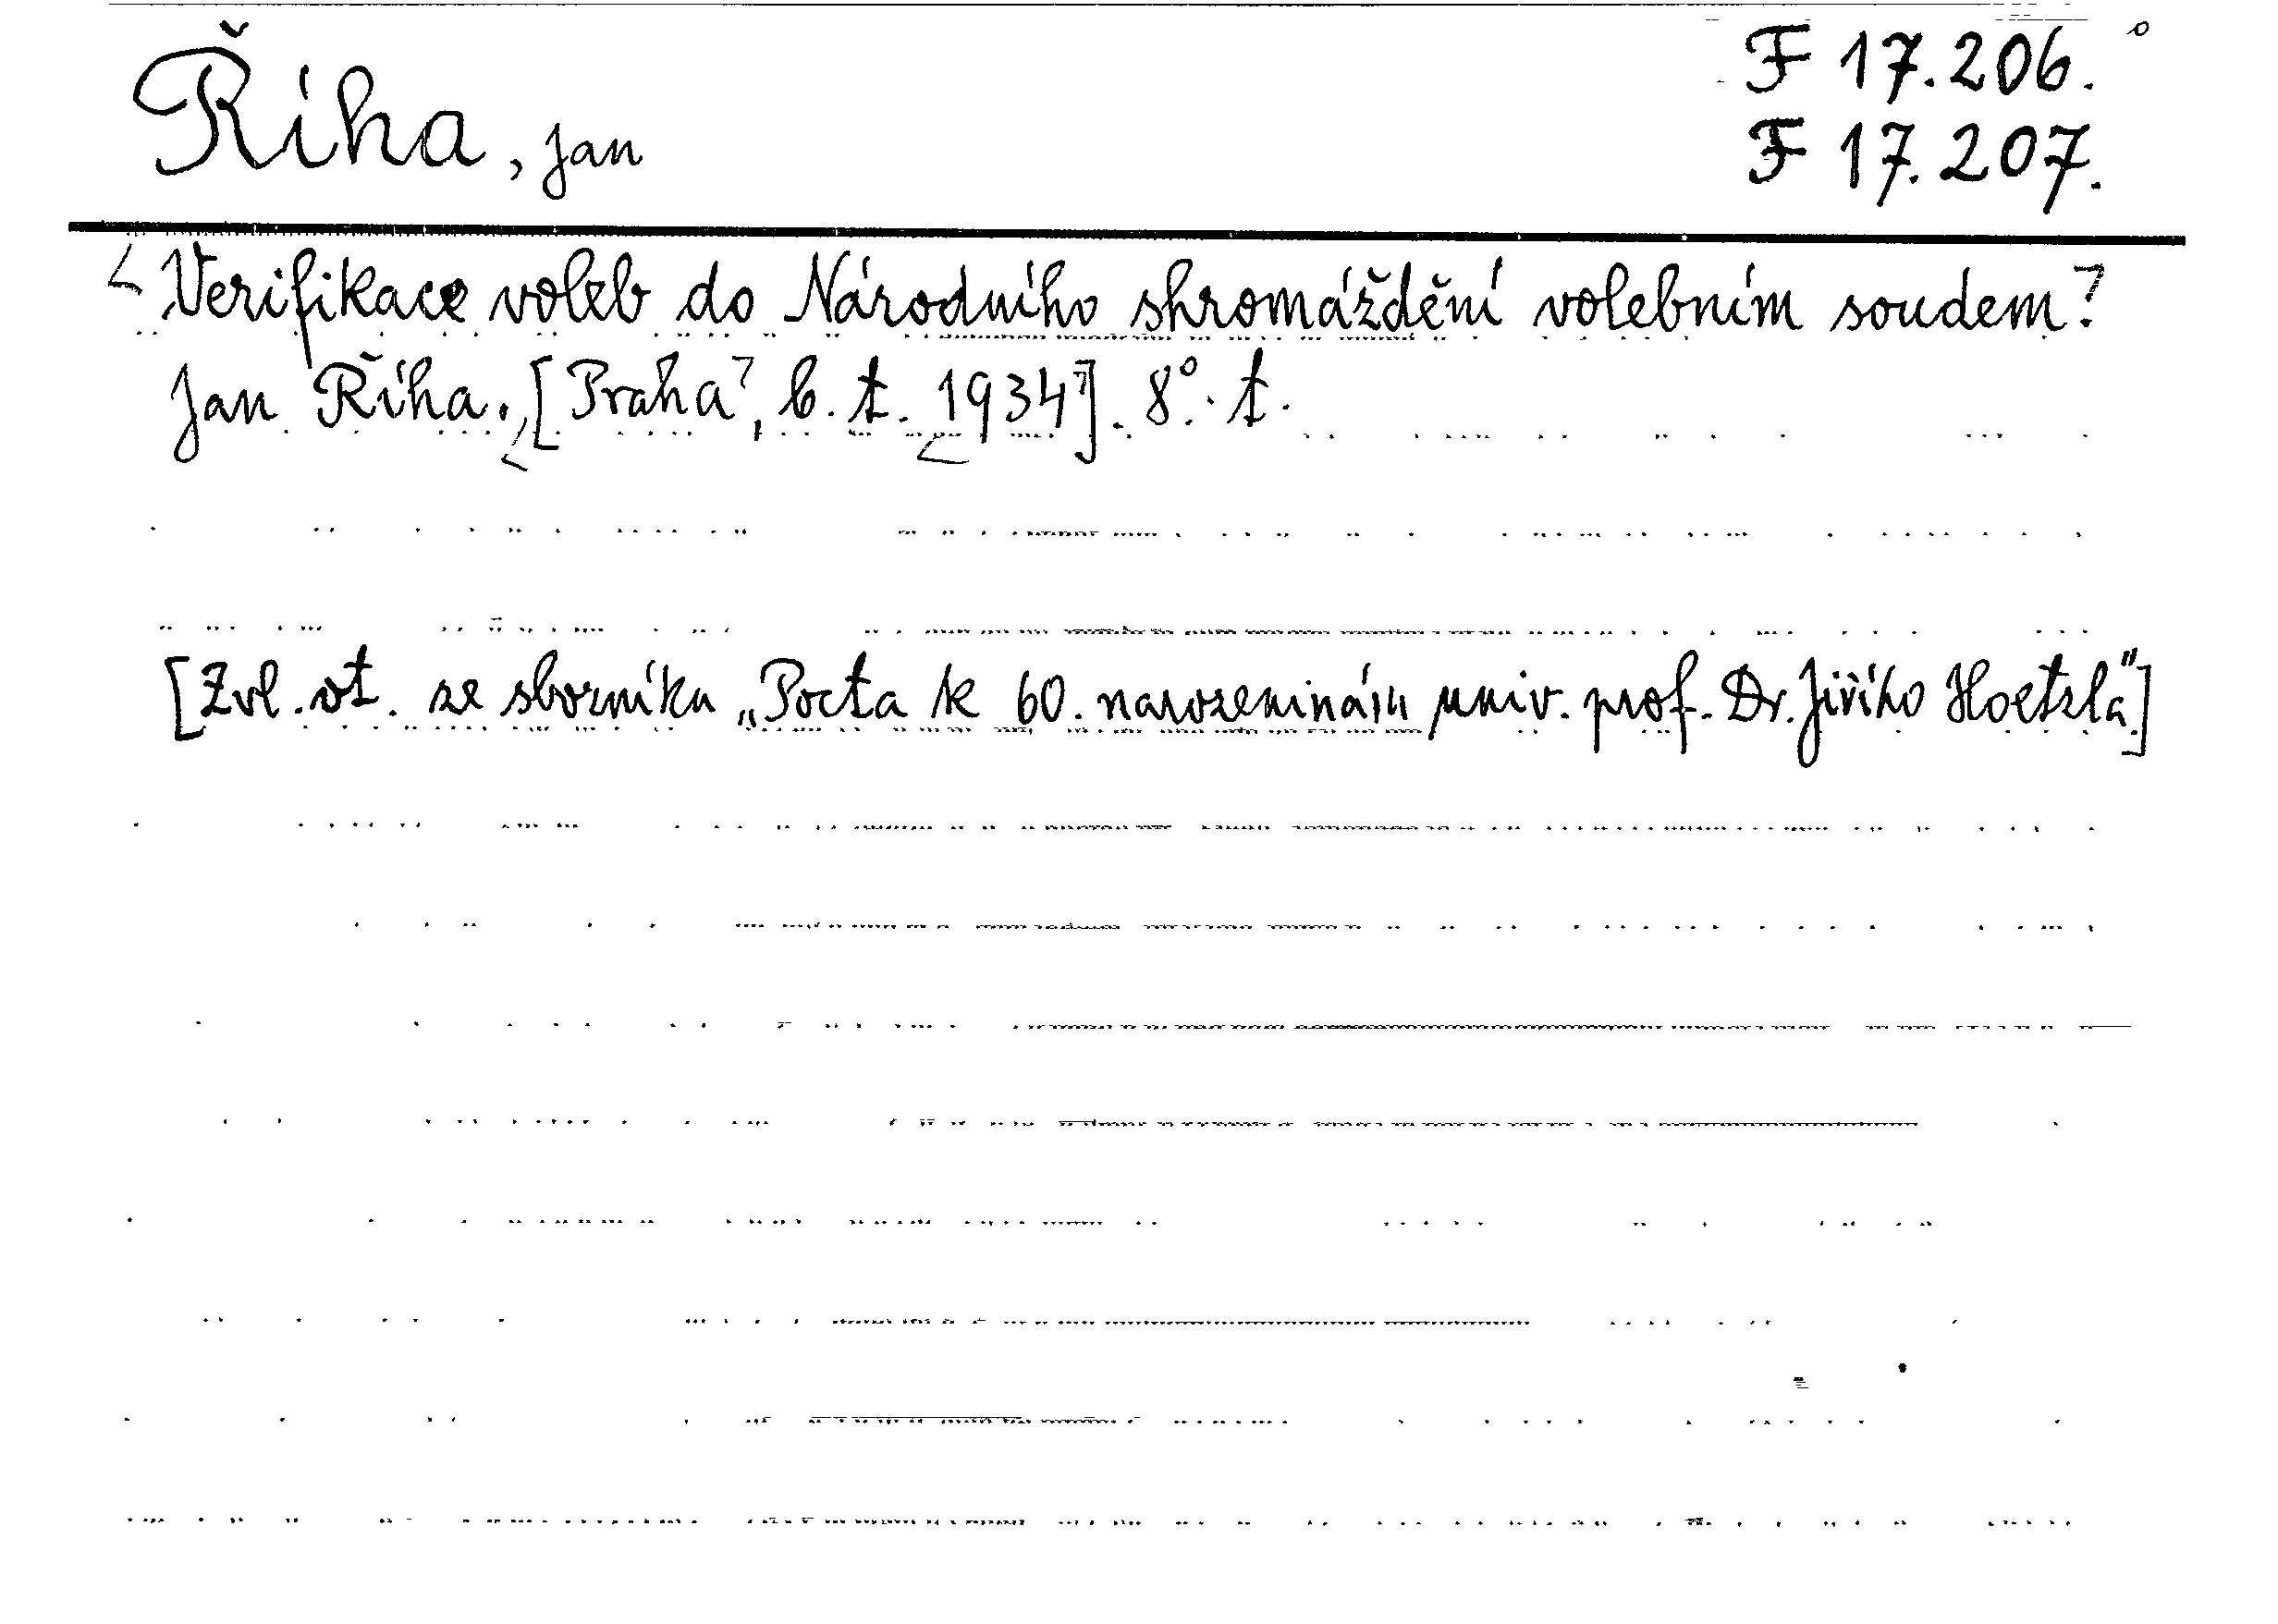 Říha, Jan
F 17.206.
F 17.207.
Verifikace voleb do Národního shromáždění volebním soudem.
Jan Říha. [Praha, b. t. 1934]. 8°. t.
[Zvl. ot. ze sborníku „Pocta k 60. narozeninám univ. prof. Dr. Jiřího Hoetzla"]